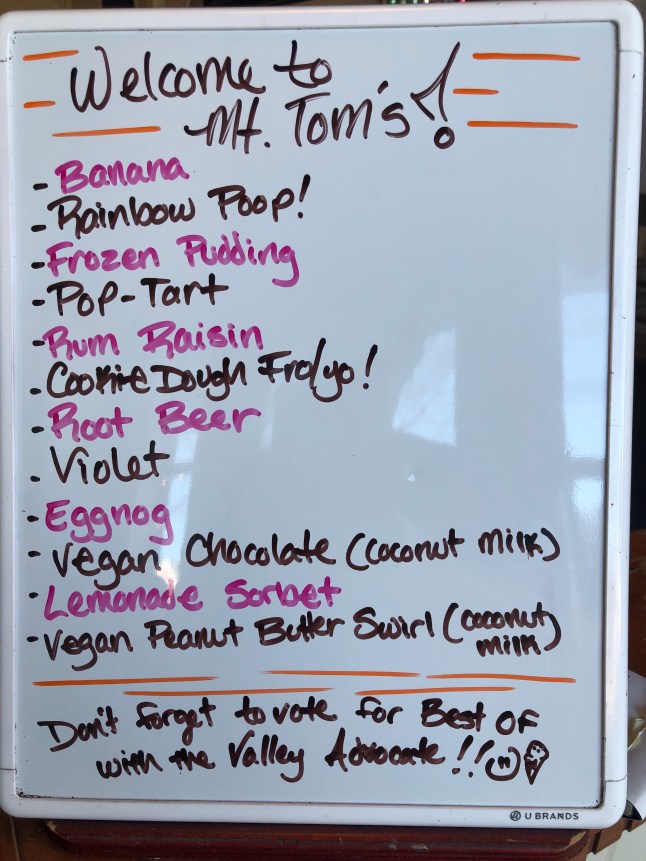 Welcome to
Mt. Tom's!
- Banana
- Rainbow Poop!
- Frozen Pudding
- Pop-Tart
- Rum Raisin
- Cookie Dough Fro/yo!
- Root Beer
- Violet
- Eggnog
- Vegan Chocolate (coconut milk)
- Lemonade Sorbet
- Vegan Peanut Butter Swirl (coconut
milk)
Don't forget to vote for Best of
with the Valley Advocate!!
U BRANDS